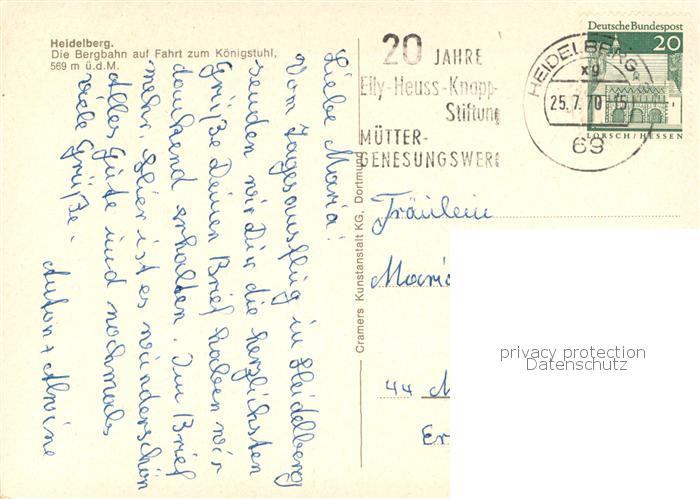 Heidelberg.
Die Bergbahn auf Fahrt zum Königstuhl,
569 m ü.d.M.
Liebe Maria!
Vom Tagesausflug in Heidelberg
senden wir Dir die herzlichsten
Grüße. Deinen Brief haben wir
dankend erhalten. Im Brief
mehr. Hier ist es wunderschön
Alles Gute und nochmals
viele Grüße.
Anton + Alwine
Cramers Kunstanstalt KG, Dortmund
20 JAHRE
Elly-Heuss-Knapp-
Stiftung
MÜTTER-
GENESUNGSWERK
HEIDELBERG
xg
25.7.70-15
69
Deutsche Bundespost
20
LORSCH/HESSEN
Fräulein
Maria
44 M
Er
privacy protection
Datenschutz